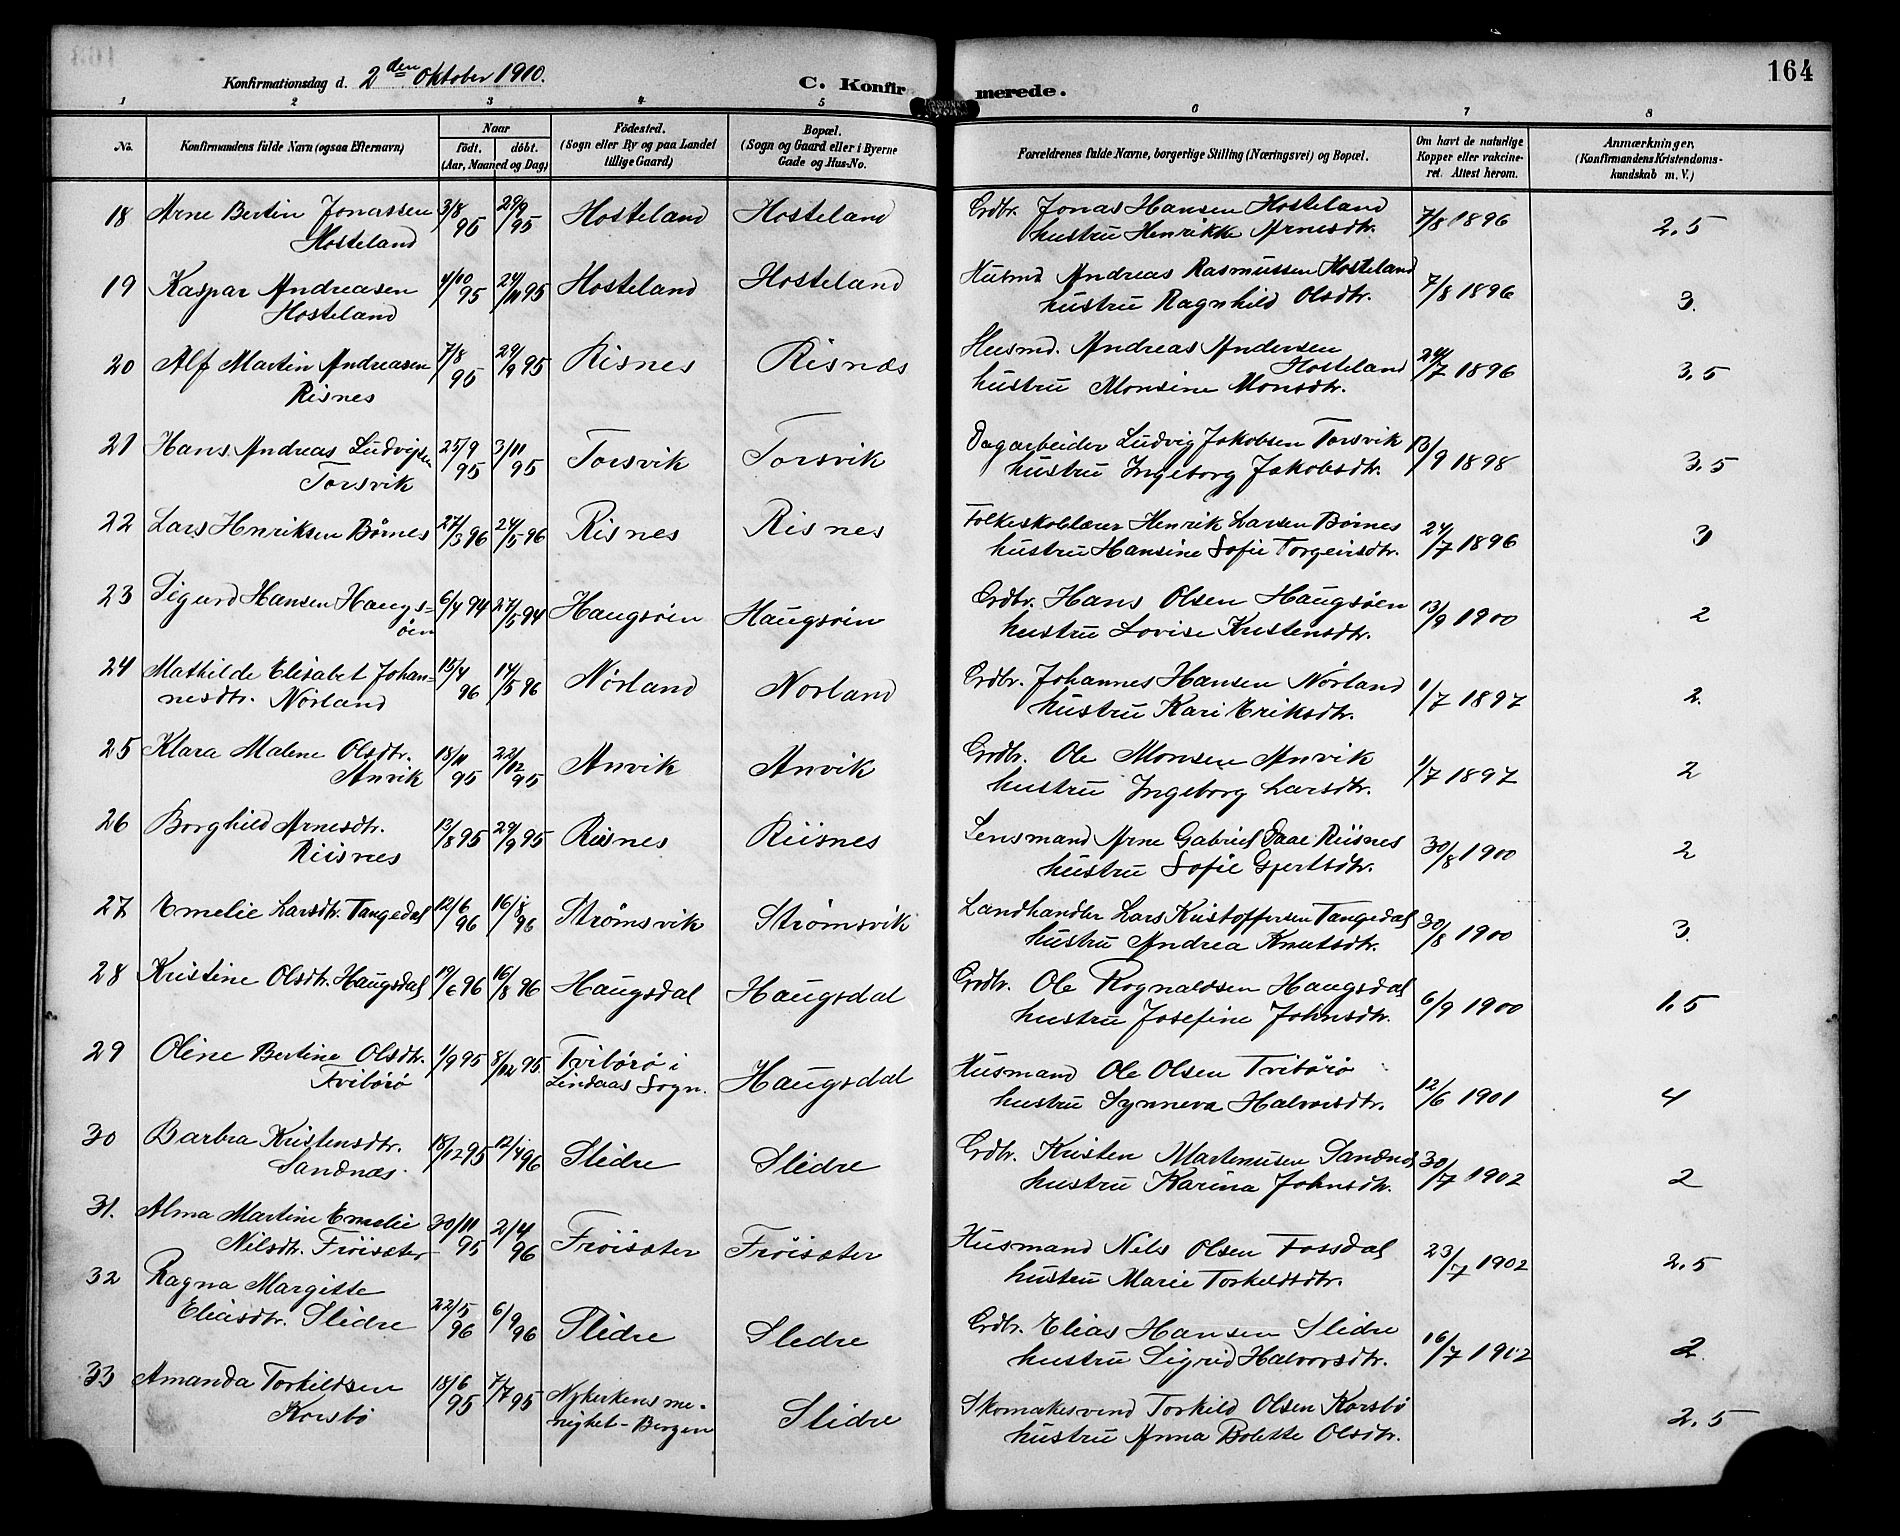 164
Konfirmationsdag d. 2den Oktober 1910.
C. Konfirmerede.
1 2 3 4 5 6 7 8
No. Konfirmandens fulde Navn (ogsaa Efternavn) Naar født. døbt. (Aar, Maaned og Dag) Fødested. (Sogn eller By og paa Landet tillige Gaard) Bopæl. (Sogn og Gaard eller i Byerne Gade og Hus-No. Forældrenes fulde Navne, borgerlige Stilling (Næringsvei) og Bopæl. Om havt de naturlige Kopper eller vakcineret. Attest herom. Anmærkninger. (Konfirmandens Kristendomskundskab m. V.)
18 Arne Bertin Jonassen Hosteland 3/8 95 29/9 95 Hosteland Hosteland Grdbr. Jonas Hansen Hosteland hustru Henrikke Arnesdtr. 7/8 1896 2,5
19 Kaspar Andreasen Hosteland 4/10 95 24/11 95 Hosteland Hosteland Husmd. Andreas Rasmussen Hosteland hustru Ragnhild Olsdtr. 7/8 1896 3.
20 Alf Martin Andreasen Risnes 7/8 95 29/9 95 Risnes Risnæs Husmd. Andreas Andersen Hosteland hustru Monsine Monsdtr. 24/7 1896 3,5
21 Hans Andreas Ludvigsen Torsvik 25/9 95 3/11 95 Torsvik Torsvik Dagarbeider Ludvig Jakobsen Torsvik hustru Ingeborg Jakobsdtr. 13/9 1898 3,5
22 Lars Henriksen Børnes 27/3 96 24/5 96 Risnes Risnes Folkeskolelærer Henrik Larsen Børnes hustru Hansine Sofie Torgeirsdtr. 24/7 1896 3
23 Sigurd Hansen Haugsøen 6/4 94 27/5 94 Haugsøen Haugsøen Grdbr. Hans Olsen Haugsøen hustru Lovise Kristensdtr. 13/9 1900 2
24 Mathilde Elisabet Johannesdtr. Nørland 15/4 96 14/5 96 Nørland Norland Grdbr. Johannes Hansen Nørland hustru Kari Eriksdtr. 1/7 1897 2.
25 Klara Malene Olsdtr. Anvik 18/11 95 22/12 95 Anvik Anvik Grdbr. Ole Monsen Anvik hustru Ingeborg Larsdtr. 1/7 1897 2
26 Borghild Arnesdtr. Riisnes 13/8 95 29/9 95 Risnes Riisnes Lensmand Arne Gabriel Daae Riisnes hustru Sofie Gjertsdtr. 30/8 1900 2
27 Emelie Larsdtr. Tangedal 12/6 96 16/8 96 Strømsvik Strømsvik Landhandler Lars Kristoffersen Tangedal hustru Andrea Knutsdtr. 30/8 1900 3.
28 Kristine Olsdtr. Haugsdal 19/6 96 16/8 96 Haugsdal Haugsdal Grdbr. Ole Rognaldsen Haugsdal hustru Josefine Johnsdtr. 6/9 1900 1,5
29 Oline Bertine Olsdtr. Tvibørø 1/9 95 8/12 95 Tvibørø i Lindaas Sogn. Haugsdal Husmand Ole Olsen Tribørø hustru Synneva Halvorsdtr. 12/6 1901 4
30 Barbra Kristensdtr. Sandnæs 18/12 95 12/4 96 Slidre Slidre Grdbr. Kristen Martenusen Sandnæs hustru Karina Johnsdtr. 30/7 1902 2
31. Alma Martine Emelie Nilsdtr. Frøisæter 30/11 95 2/4 96 Frøisæter Frøisæter Husmand Nils Olsen Fossdal hustru Marie Torkeldsdtr. 23/7 1902 2,5
32 Ragna Margitte Eliasdtr. Slidre 22/5 96 6/9 96 Slidre Sledre Grdbr. Elias Hansen Slidre hustru Sigrid Halvorsdtr. 16/7 1902 2.
33 Amanda Torkildsen Korsbø 18/6 95 7/7 95 Nykirkens menighet - Bergen Slidre Skomakesvend Torkild Olsen Korsbø hustru Anna Bolette Olsdtr. 2,5